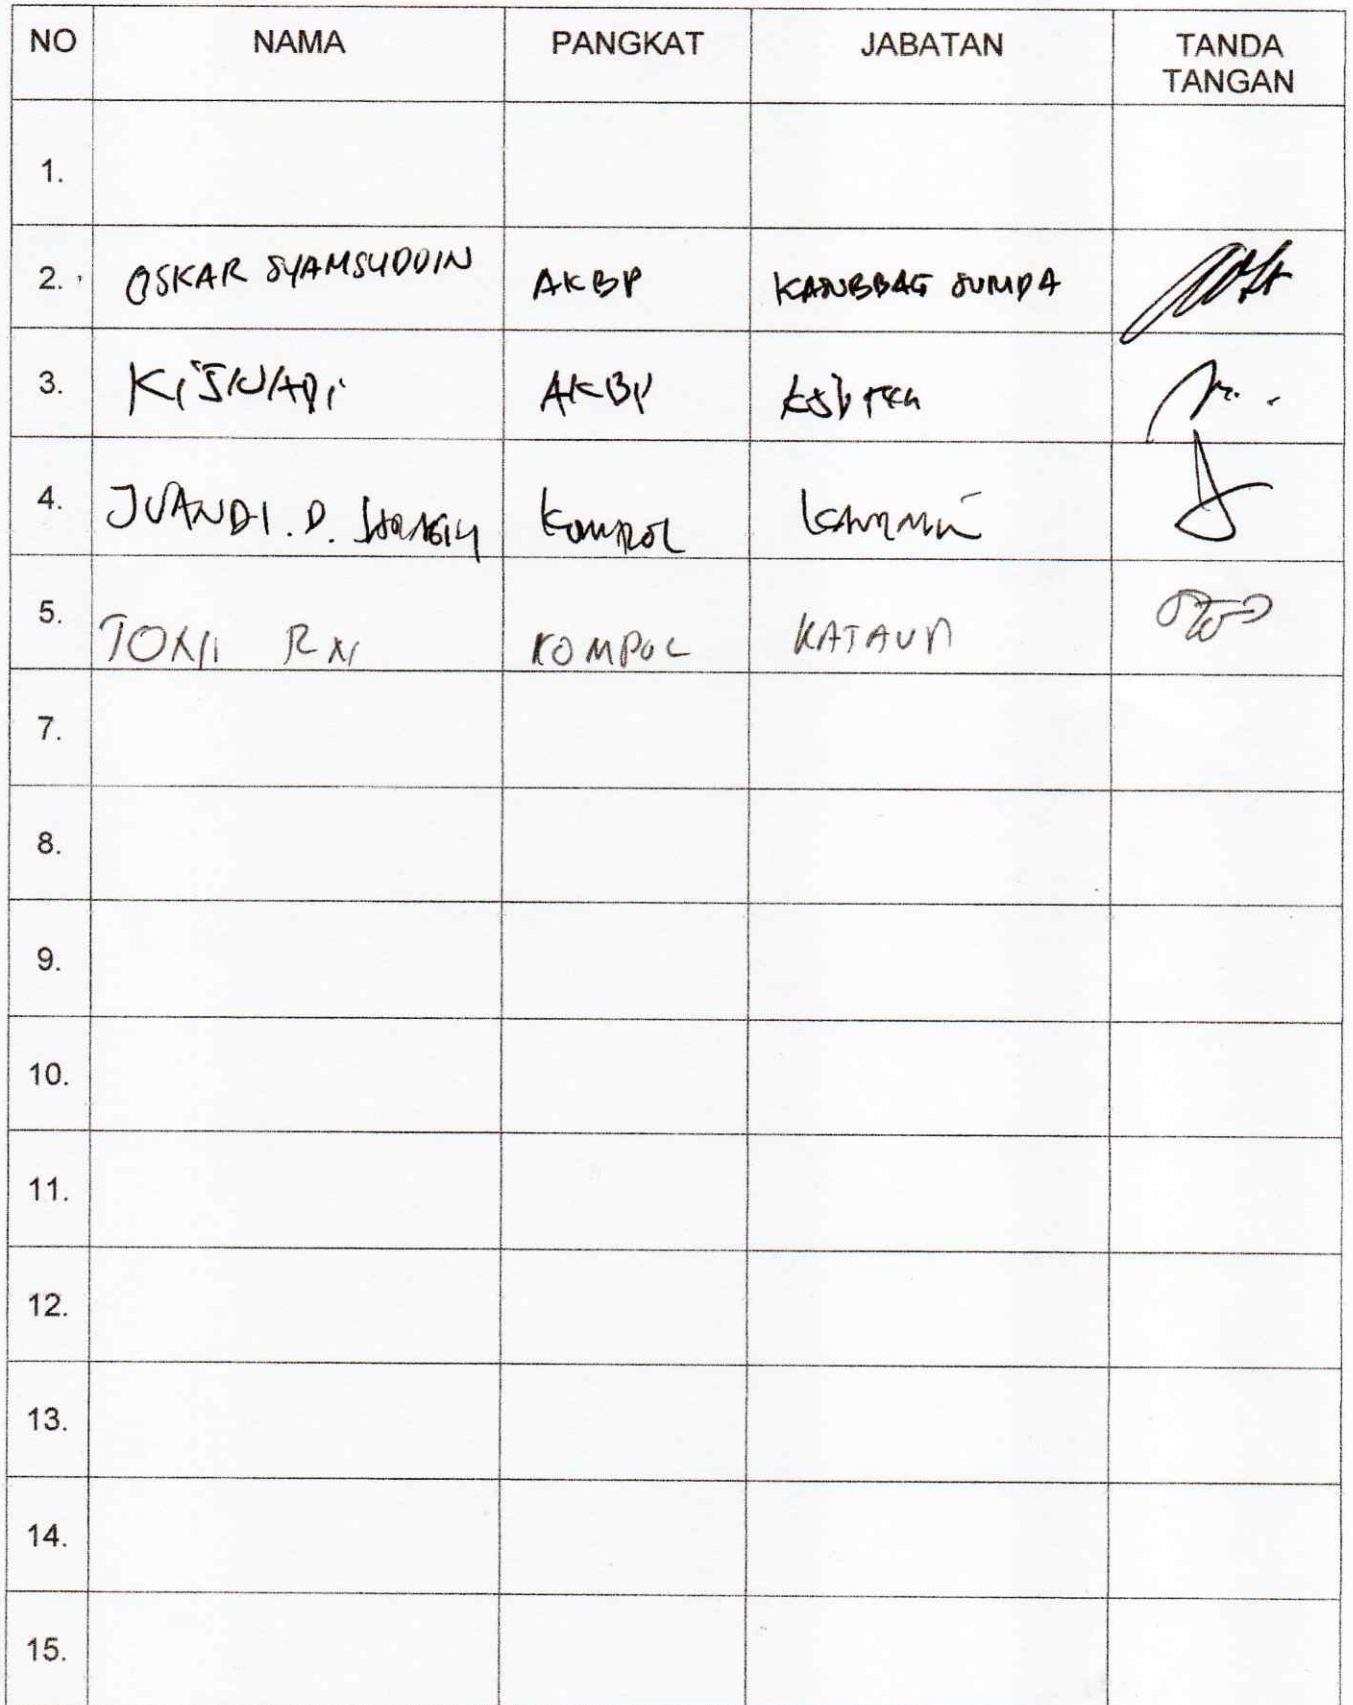 NO NAMA PANGKAT JABATAN TANDA
TANGAN
1.
2. OSKAR SYAMSUDDIN AKBP KASUBBAG SUMDA
3. KISWADI AKBP
4. JUANDI. D. KOMPOL
5. TONI KOMPOL KATAUD
7.
8.
9.
10.
11.
12.
13.
14.
15.